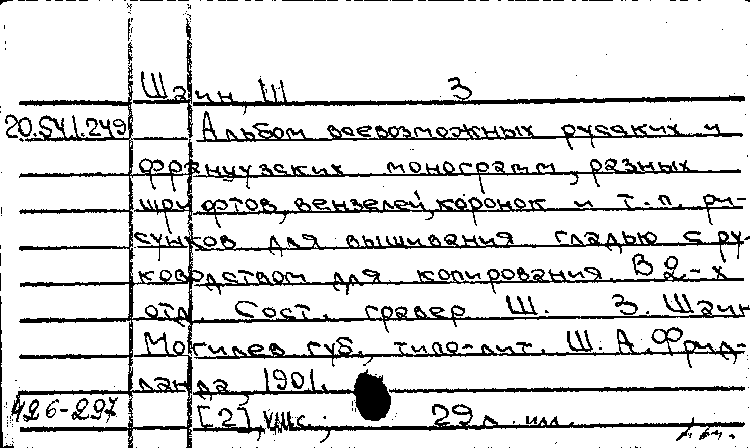 Шаин, Ш З
20.54.1.249 Альбом всевозможных русских и
французских монограмм, разных
шрифтов, вензелей, коронок и т.п. ри-
сунков для вышивания гладью с ру-
ководством для копирования. В 2-х
отд. Сост. гравер Ш. З. Шаин
Могилев губ., типо-лит. Ш. А. Фрид-
ланда, 1901.
426-297 [2], VIII с.; 29 л. илл.